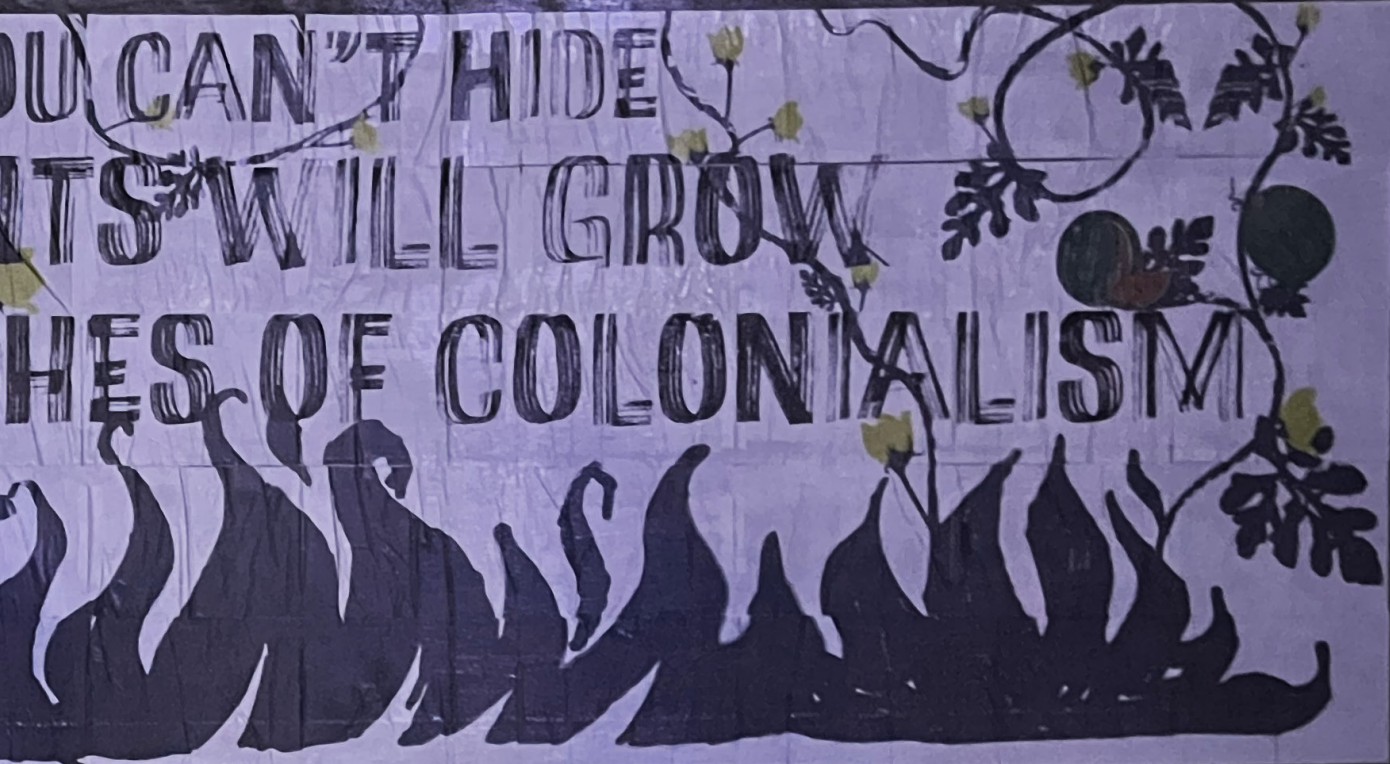 OU CAN'T HIDE
TS WILL GROW
HES OF COLONIALISM